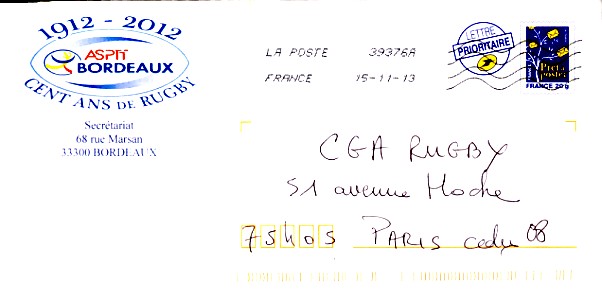 1912 - 2012
ASPTT
BORDEAUX
CENT ANS DE RUGBY
Secrétariat
68 rue Marsan
33300 BORDEAUX
LA POSTE 39376A
FRANCE 15-11-13
LETTRE
PRIORITAIRE
Prêt à
poster
FRANCE 20 g
CGA RUGBY
51 avenue Hoche
75405 PARIS cedex 08